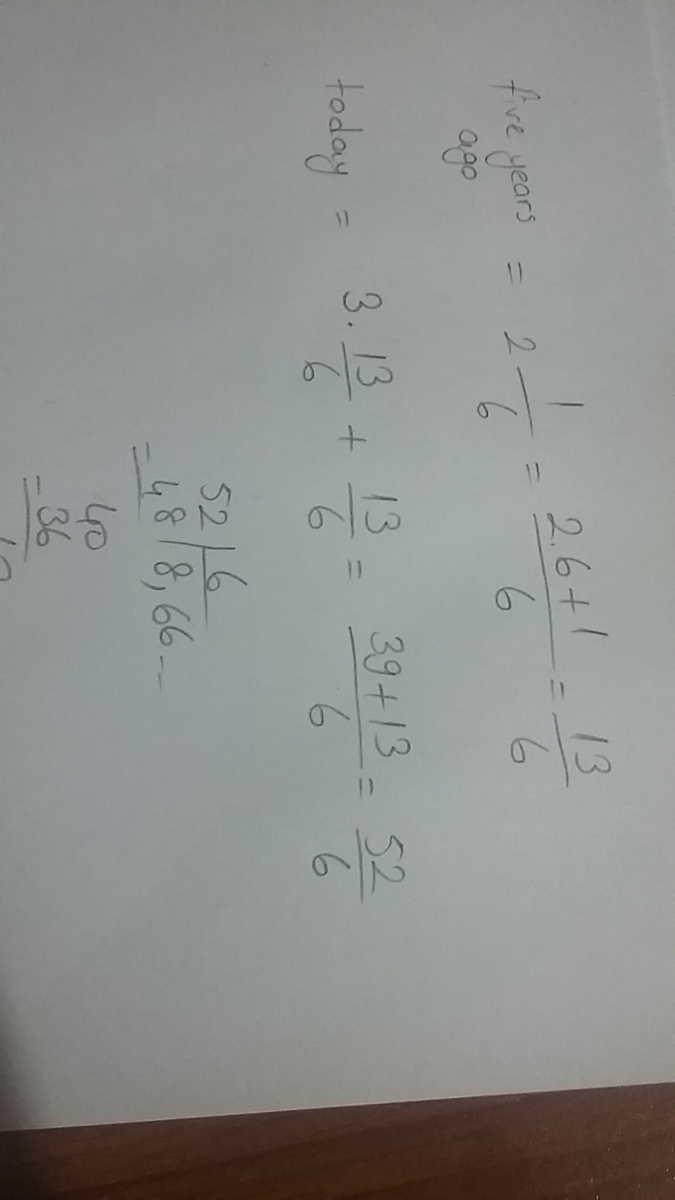 five years ago = 2 1/6 = 2.6+1/6 = 13/6
today = 3.13/6 + 13/6 = 39+13/6 = 52/6
52 | 6
-48 | 8,66...
40
-36